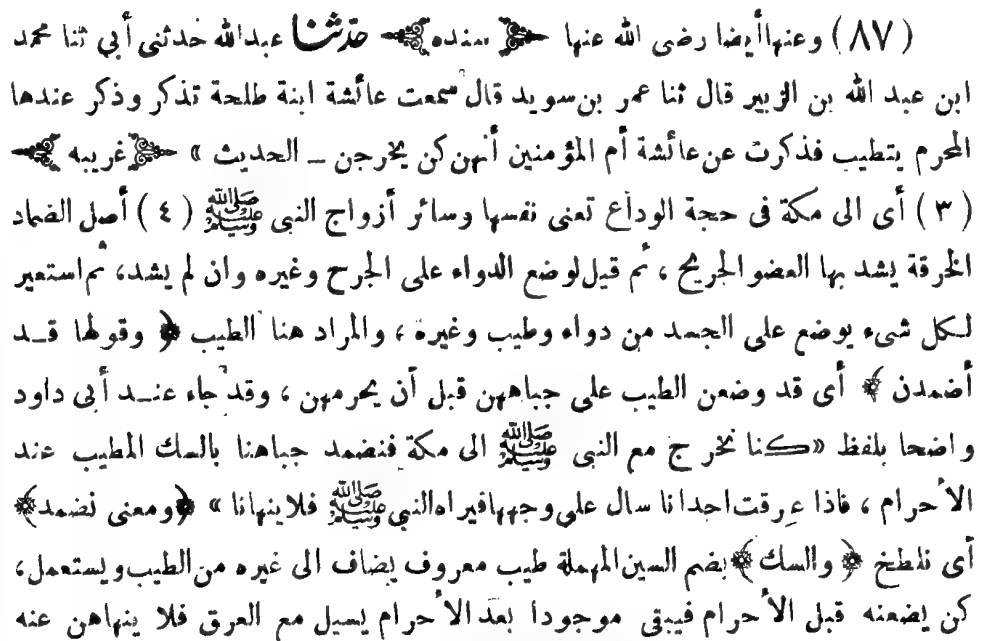 (٨٧) وعنها أيضا رضى الله عنها ﴿ سنده ﴾ حدثنا عبدالله حدثنى أبي ثنا محمد
ابن عبد الله بن الزبير قال ثنا عمر بن سويد قال سمعت عائشة ابنة طلحة تذكر وذكر عندها
المحرم يتطيب فذكرت عن عائشة أم المؤمنين أنهن كن يخرجن ــ الحديث » ﴿ غريبه ﴾
(٣) أى الى مكة فى حجة الوداع تعنى نفسها وسائر أزواج النبى ﷺ (٤) أصل الضماد
الخرقة يشد بها العضو الجريح ، ثم قيل لوضع الدواء على الجرح وغيره وان لم يشد، ثم استعير
لكل شىء يوضع على الجسد من دواء وطيب وغيره ، والمراد هنا الطيب ﴿ وقولها قــد
أضمدن ﴾ أى قد وضعن الطيب على جباههن قبل أن يحرمهن ، وقد جاء عنــد أبى داود
واضحا بلفظ «كنا نخرج مع النبى ﷺ الى مكة فنضمد جباهنا بالسك المطيب عند
الأحرام ، فاذا عرقت احدانا سال على وجهها فيراه النبى ﷺ فلا ينهانا » ﴿ ومعنى نضمد ﴾
أى نلطخ ﴿ والسك ﴾ بضم السين المهملة طيب معروف يضاف الى غيره من الطيب ويستعمل،
كن يضعنه قبل الأحرام فيبقى موجودا بعد الأحرام يسيل مع العرق فلا ينهاهن عنه